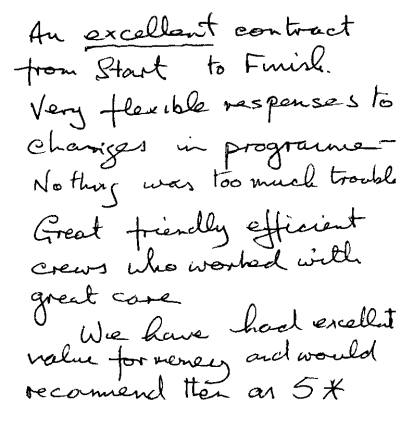 An excellent contract
from Start to Finish.
Very flexible responses to
changes in programme -
Nothing was too much trouble
Great friendly efficient
crews who worked with
great care
We have had excellent
value for money and would
recommend them as 5*